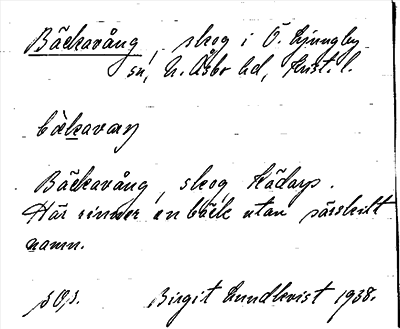 Bäckavång, skog i Ö. Ljungby
sn, N. Åsbo hd, Krist. l.
bækavaŋ
Bäckavång, skog, Hädarp.
Här rinner en bäck utan särskilt
namn.
Birgit Lundkvist 1938.